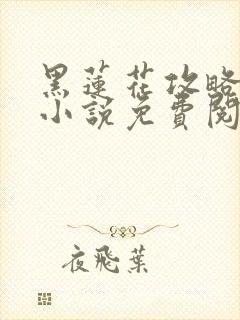 黑蓮花攻略
小說免費閱
夜飛葉